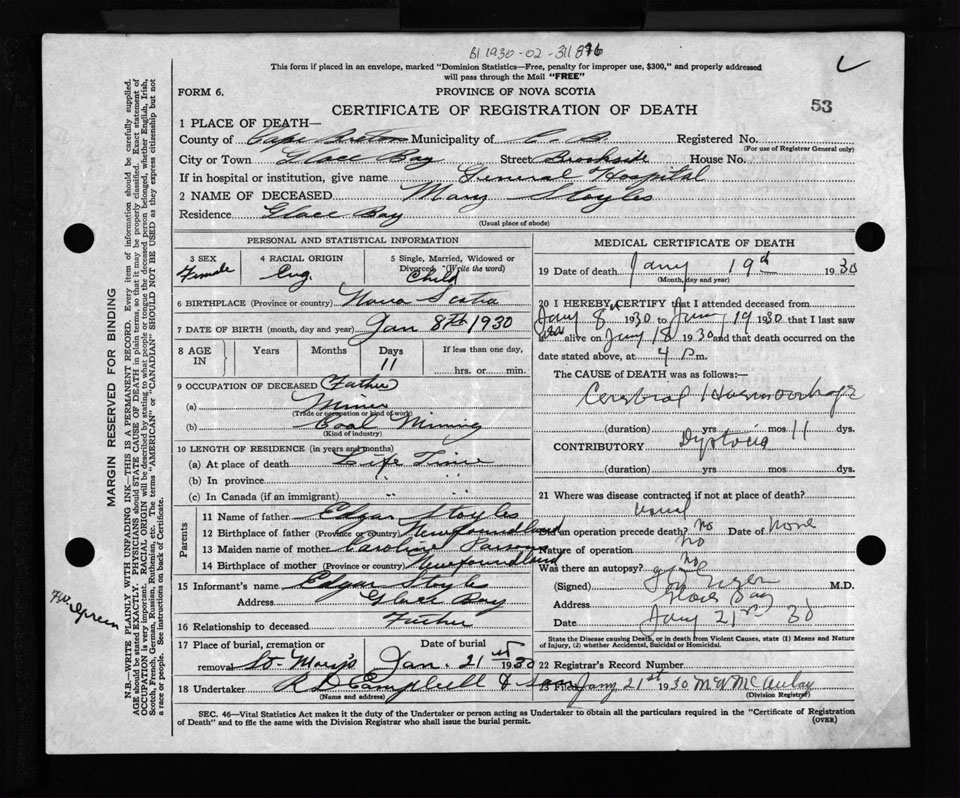 BI 1930-02-311896
This form if placed in an envelope, marked "Dominion Statistics—Free, penalty for improper use, $300," and properly addressed
will pass through the Mail "FREE"
FORM 6.
PROVINCE OF NOVA SCOTIA
CERTIFICATE OF REGISTRATION OF DEATH
53
1 PLACE OF DEATH—
County of Cape Breton Municipality of C. B. Registered No.
(For use of Registrar General only)
City or Town Glace Bay Street Brookside House No.
If in hospital or institution, give name General Hospital
2 NAME OF DECEASED Mary Stoyles
Residence Glace Bay
(Usual place of abode)
PERSONAL AND STATISTICAL INFORMATION
3 SEX Female
4 RACIAL ORIGIN Eng.
5 Single, Married, Widowed or Divorced (Write the word) Child
6 BIRTHPLACE (Province or country) Nova Scotia
7 DATE OF BIRTH (month, day and year) Jan 8th 1930
8 AGE IN Years Months Days 11 If less than one day, hrs. or min.
9 OCCUPATION OF DECEASED (Father
(a) Miner
(Trade or occupation or kind of work)
(b) Coal Mining
(Kind of industry)
10 LENGTH OF RESIDENCE (in years and months)
(a) At place of death Life Time
(b) In province " "
(c) In Canada (if an immigrant) " "
Parents
11 Name of father Edgar Stoyles
12 Birthplace of father (Province or country) Newfoundland
13 Maiden name of mother Caroline
14 Birthplace of mother (Province or country) Newfoundland
15 Informant's name Edgar Stoyles
Address Glace Bay
16 Relationship to deceased Father
17 Place of burial, cremation or removal St Mary's
Date of burial Jan. 21st 1930
18 Undertaker R D Campbell & Son
(Name and address)
MEDICAL CERTIFICATE OF DEATH
19 Date of death Jany 19th 1930
(Month, day and year)
20 I HEREBY CERTIFY that I attended deceased from
Jany 8th 1930 to Jany 19 1930 that I last saw
her alive on Jany 18 1930 and that death occurred on the
date stated above, at 4 p.m.
The CAUSE of DEATH was as follows:—
Cerebral Haemorrhage
(duration) yrs mos 11 dys.
CONTRIBUTORY Dystocia
(duration) yrs mos dys.
21 Where was disease contracted if not at place of death?
Did an operation precede death? No Date of None
Nature of operation No
Was there an autopsy? No
(Signed) M.D.
Address Glace Bay
Date Jany 21st 30
State the Disease causing Death, or in death from Violent Causes, state (1) Means and Nature
of Injury, (2) whether Accidental, Suicidal or Homicidal.
22 Registrar's Record Number
23 Filed Jany 21st 1930 M. N McAulay
(Division Registrar)
SEC. 46—Vital Statistics Act makes it the duty of the Undertaker or person acting as Undertaker to obtain all the particulars required in the "Certificate of Registration
of Death" and to file the same with the Division Registrar who shall issue the burial permit.
(OVER)
MARGIN RESERVED FOR BINDING
N.B.—WRITE PLAINLY WITH UNFADING INK—THIS IS A PERMANENT RECORD. Every item of information should be carefully supplied.
AGE should be stated EXACTLY. PHYSICIANS should STATE CAUSE OF DEATH in plain terms, so that it may be properly classified. Exact statement of
OCCUPATION is very important. RACIAL ORIGIN will be described by stating to what people or tongue the deceased person belonged, whether English, Irish,
Scotch, French, German, Russian, Ruthenian, etc. The terms "AMERICAN" or "CANADIAN" SHOULD NOT BE USED as they express citizenship but not
a race or people. See instructions on back of Certificate.